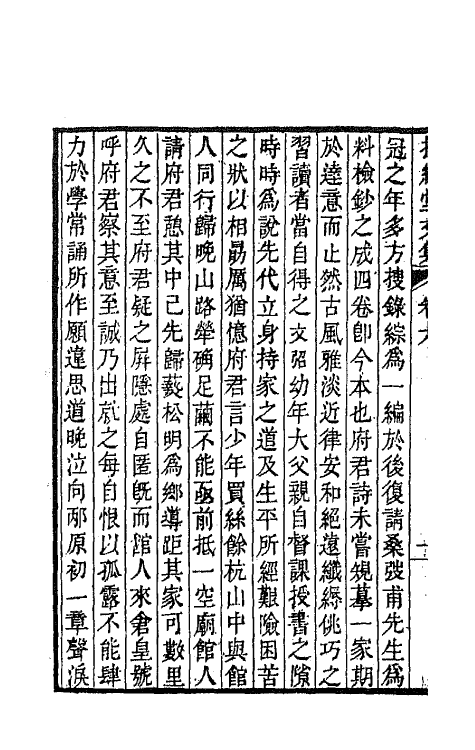 抱經堂文集 卷六
冠之年多方搜錄綜爲一編於後復請桑弢甫先生爲
料檢鈔之成四卷卽今本也府君詩未嘗規摹一家期
於達意而止然古風雅淡近律安和絕遠纖縟佻巧之
習讀者當自得之文弨幼年大父親自督課授書之隙
時時爲說先代立身持家之道及生平所經艱險困苦
之狀以相勗厲猶憶府君言少年買絲餘杭山中與館
人同行歸晚山路犖确足繭不能亟前抵一空廟館人
請府君憩其中己先歸爇松明爲鄉導距其家可數里
久之不至府君疑之屛隱處自匿旣而館人來倉皇號
呼府君察其意至誠乃出就之每自恨以孤露不能肆
力於學常誦所作願違思道晚泣向邴原初一章聲淚